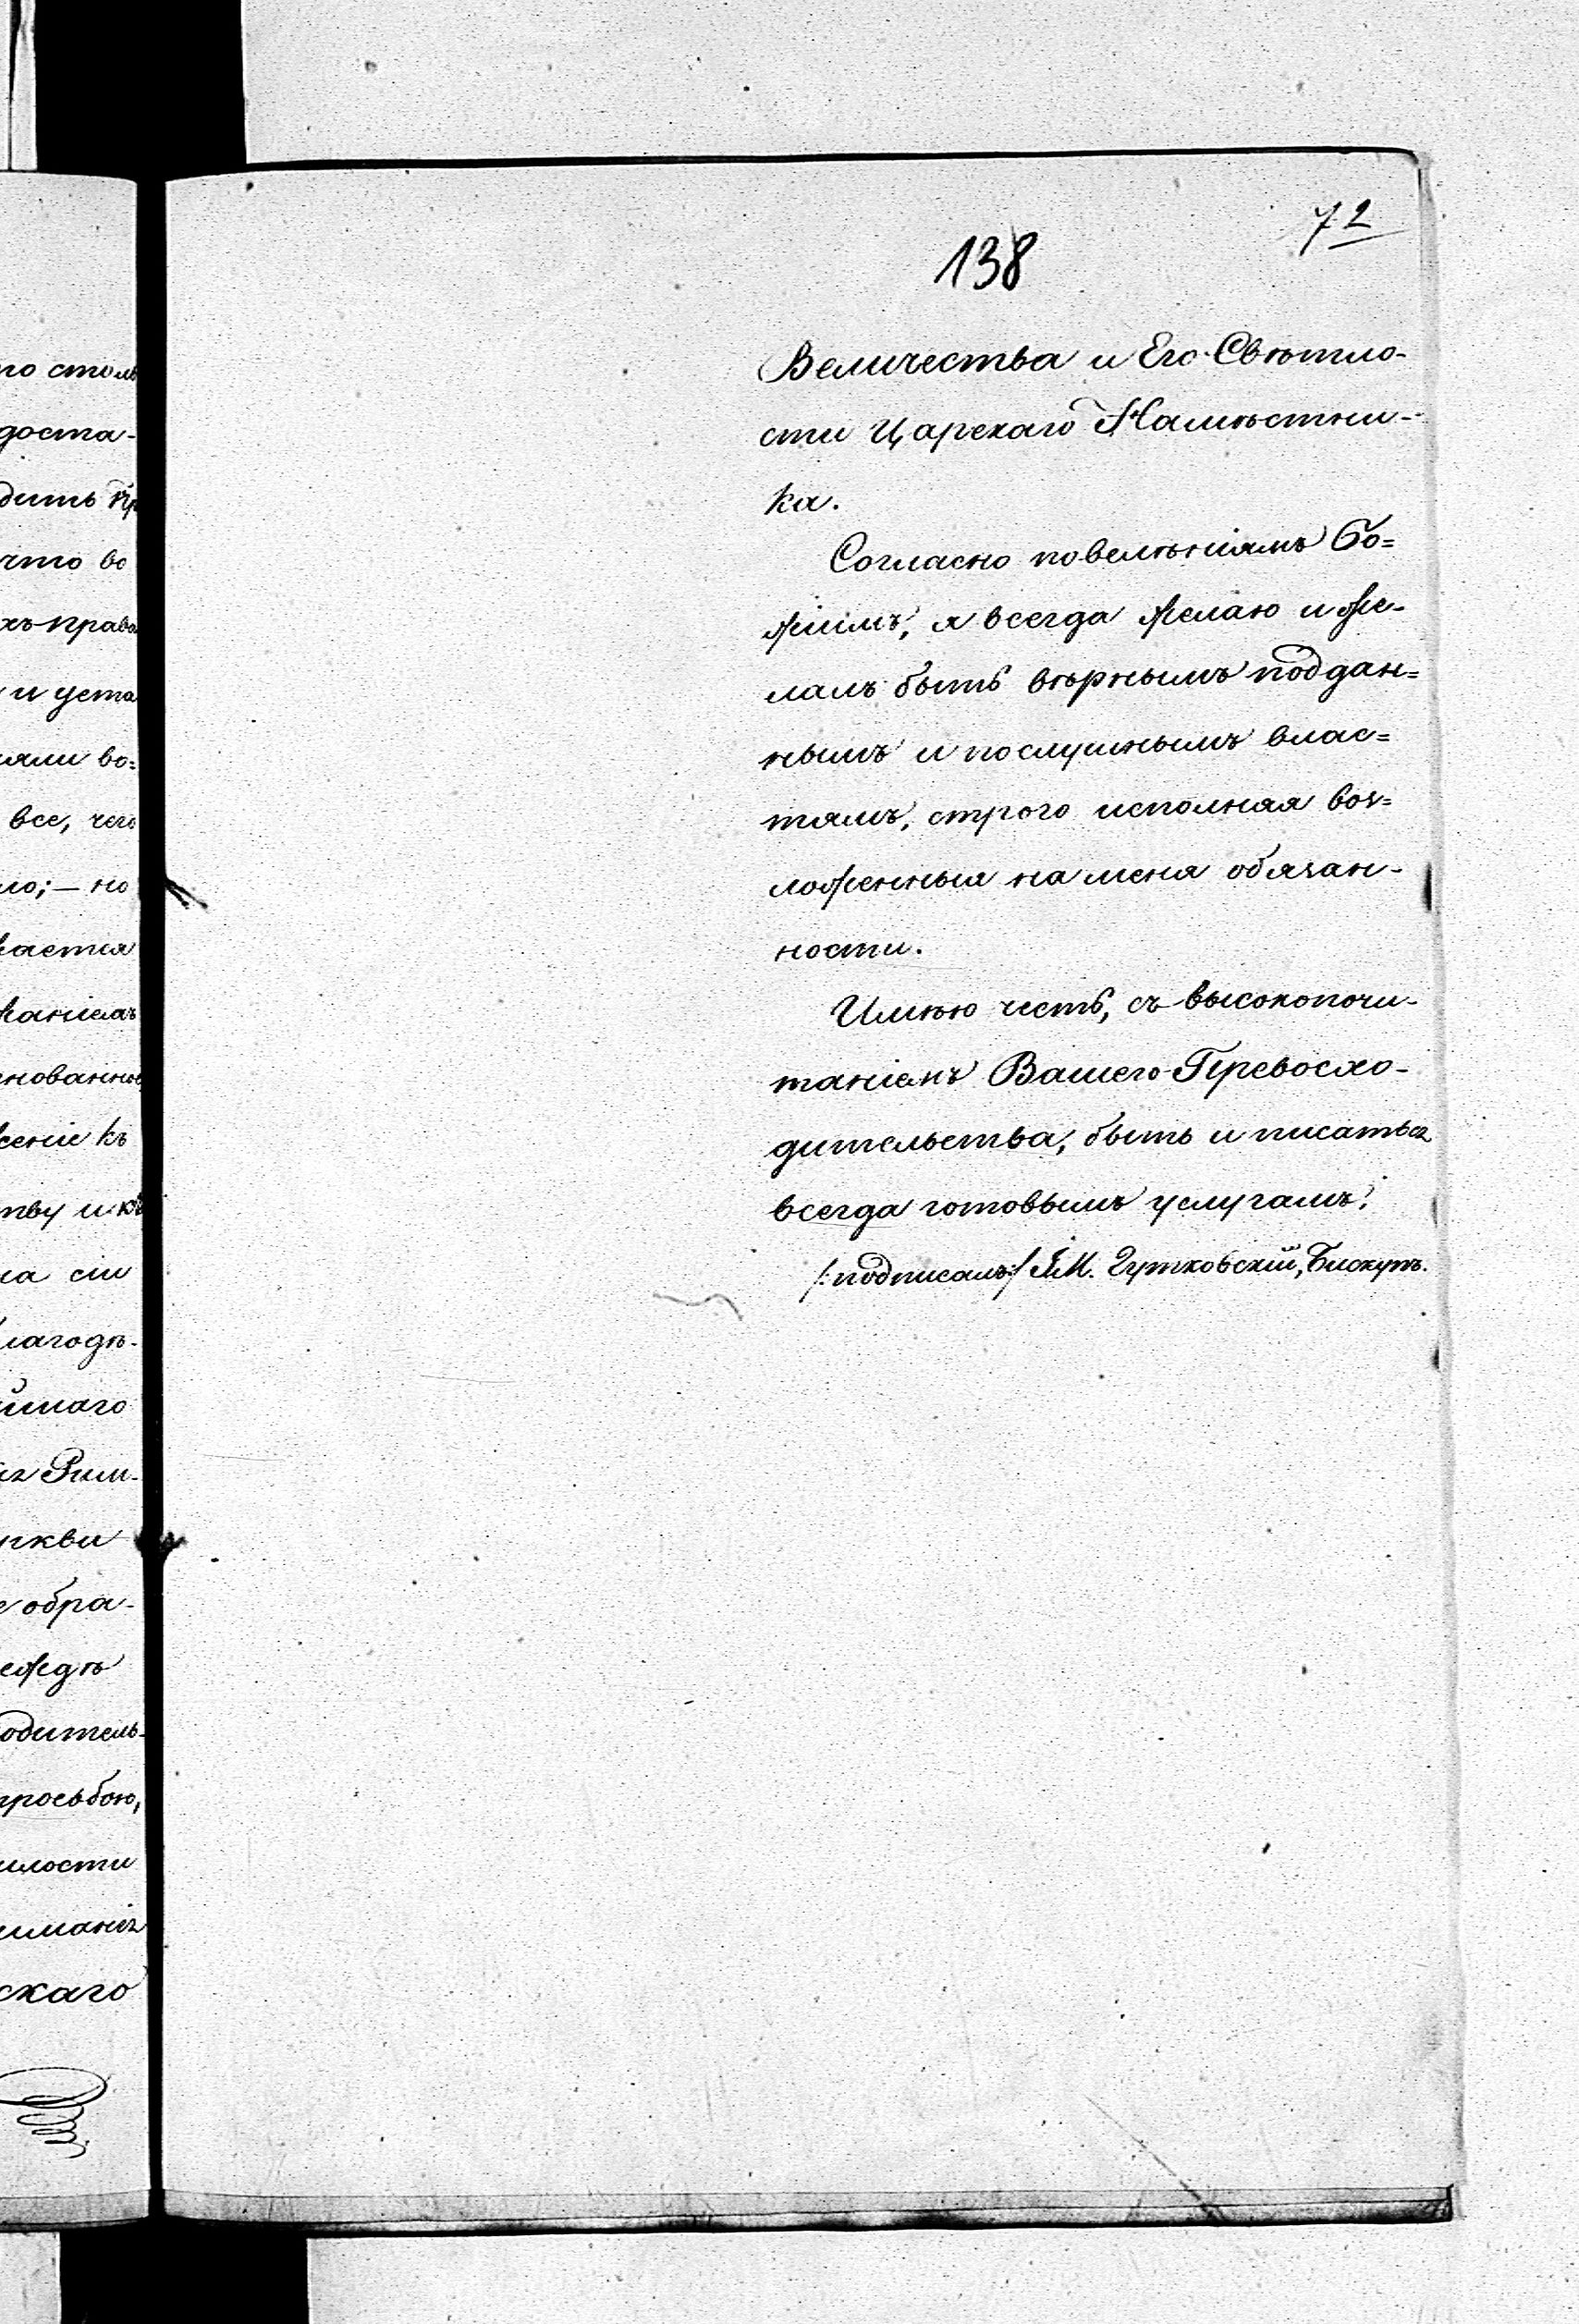 72
138
Величества и Его Свѣтло-
сти Царскаго Намѣстни-
ка.
Согласно повелѣніямъ Бо=
жіимъ, я всегда желаю и же-
лалъ быть вѣрнымъ поддан=
нымъ и послушнымъ влас=
тямъ, строго исполняя воз=
ложенныя на меня обязан-
ности.
Имѣю честь, съ высокопочи-
таніемъ Вашего Превосхо-
дительства, быть и писаться
всегда готовымъ услугамъ.
/:подписалъ:/ Я.М. Гутковскій, Бискупъ.
по столь
доста-
дить
что во
хъ права
и уста
яли во=
все, чего
ло; — но
кается
жаніемъ
нованно
женіе къ
тву и къ
на сіи
лагодѣ-
йшаго
Рим-
ркви
обра-
еждѣ
одитель-
просьбою,
илости
иманіе
скаго